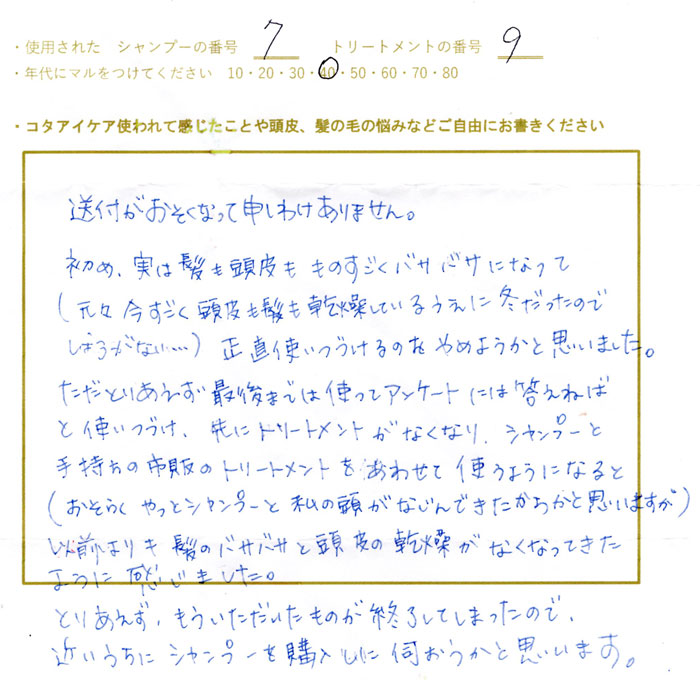 ・使用された シャンプーの番号 7 トリートメントの番号 9
・年代にマルをつけてください 10・20・30・40・50・60・70・80
・コタアイケア使われて感じたことや頭皮、髪の毛の悩みなどご自由にお書きください
送付がおそくなって申しわけありません。
初め、実は髪も頭皮も ものすごくバサバサになって
(元々今すごく頭皮も髪も乾燥しているうえに冬だったので
しょうがない…) 正直使いつづけるのをやめようかと思いました。
ただとりあえず最後までは使ってアンケートには答えねば
と使いつづけ、先にトリートメントがなくなり、シャンプーと
手持ちの市販のトリートメントをあわせて使うようになると
(おそらくやっとシャンプーと私の頭がなじんできたからかと思いますが)
以前よりも髪のバサバサと頭皮の乾燥がなくなってきた
ように感じました。
とりあえず、もういただいたものが終了してしまったので、
近いうちにシャンプーを購入しに伺おうかと思います。